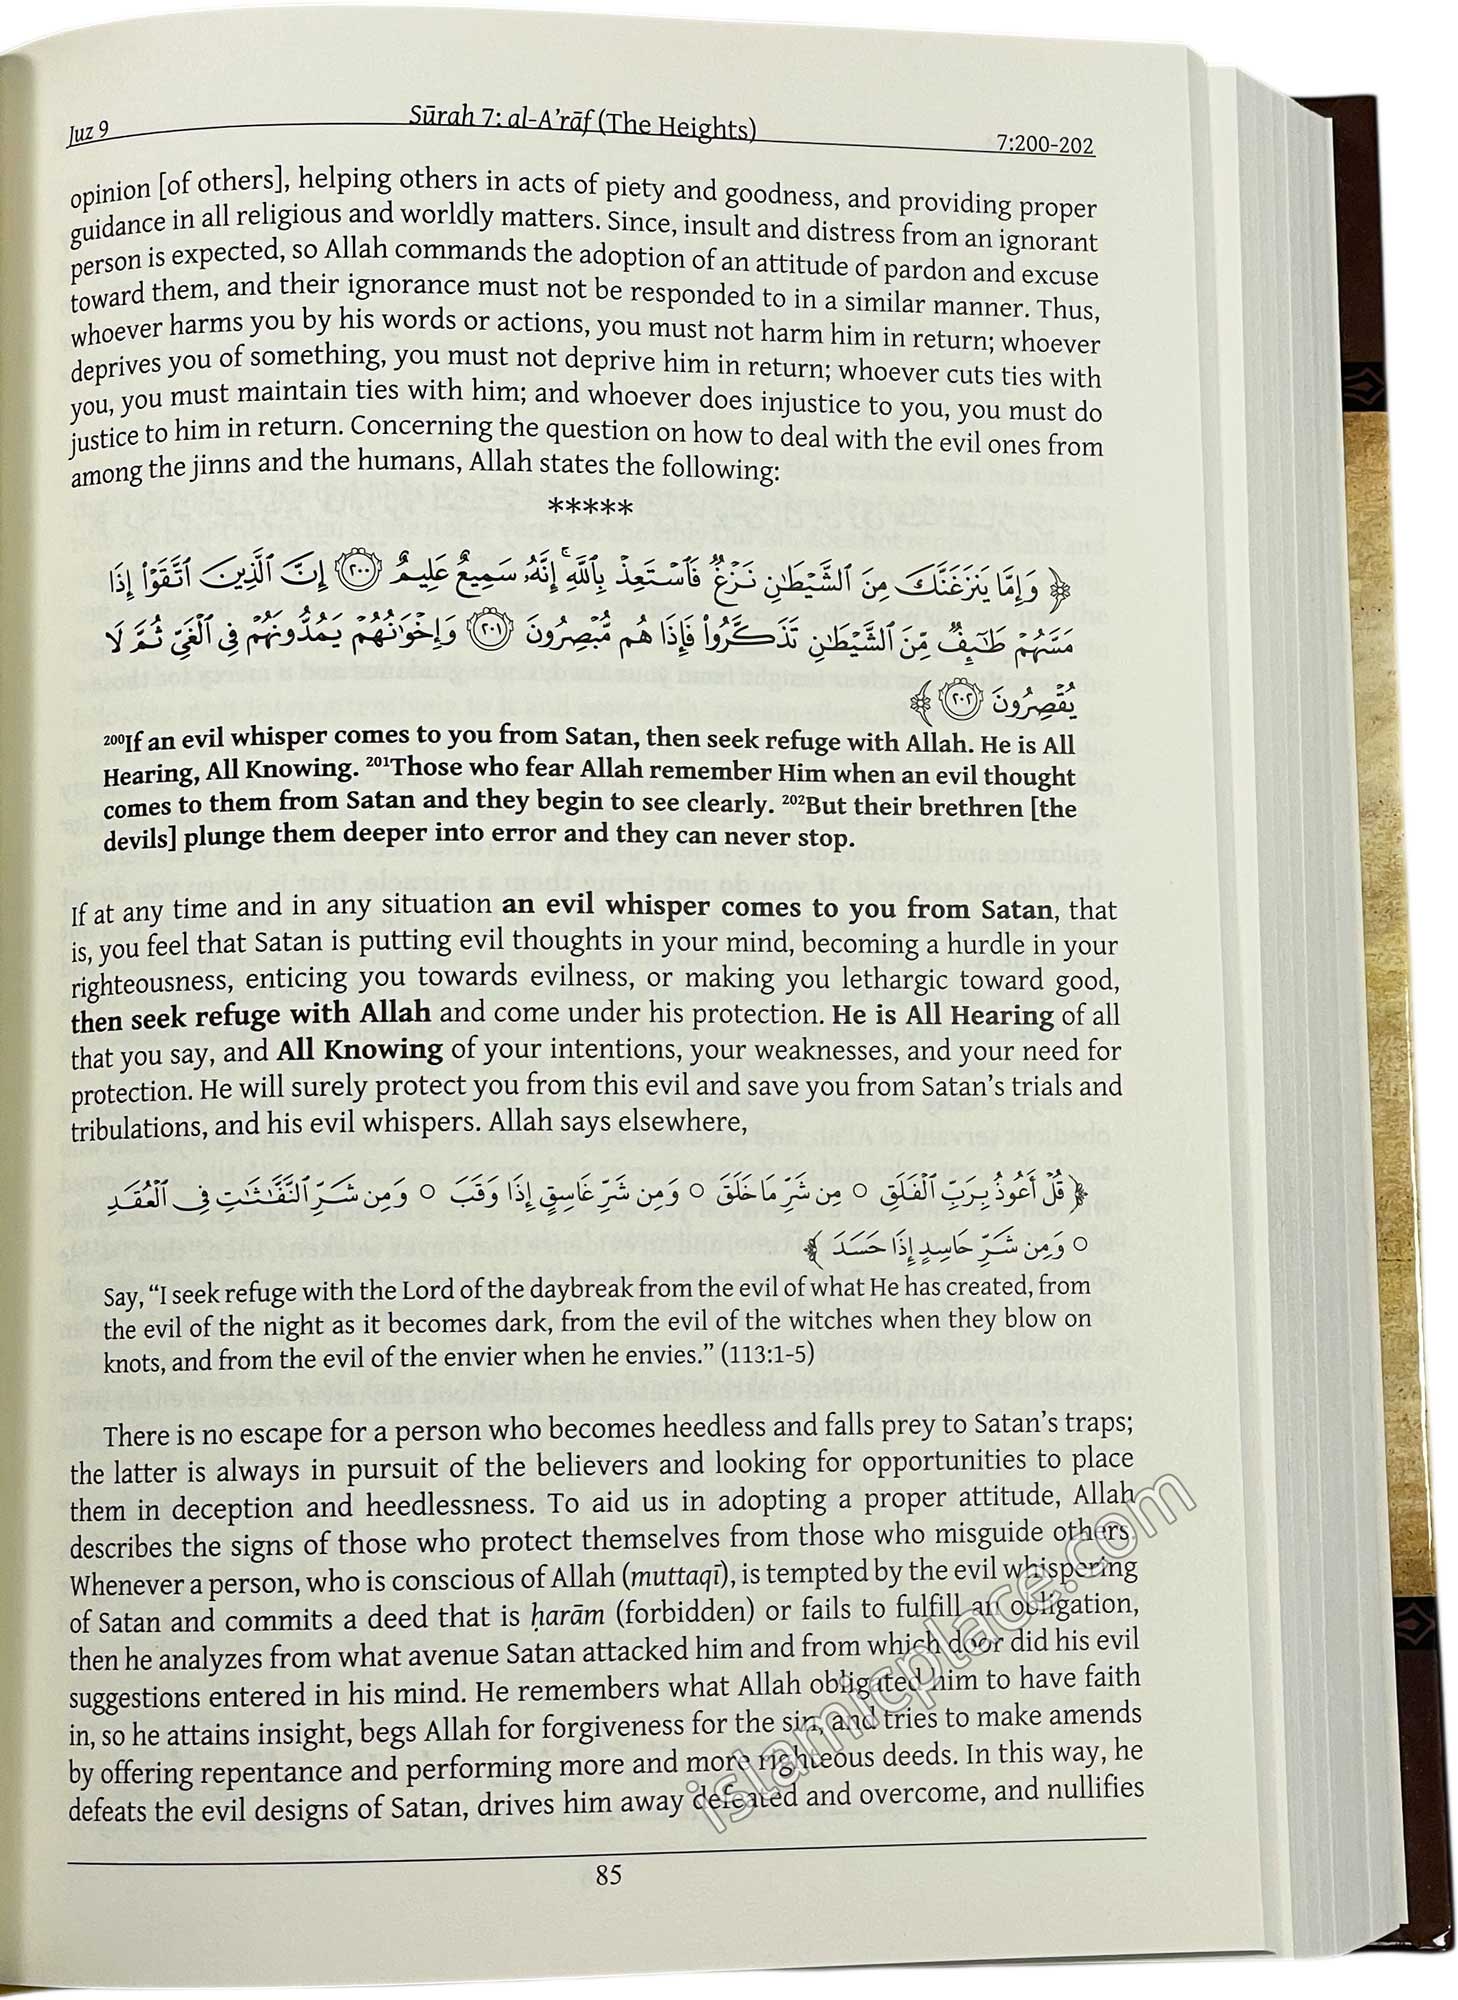 Juz 9
Sūrah 7: al-A’rāf (The Heights)
7:200-202
opinion [of others], helping others in acts of piety and goodness, and providing proper
guidance in all religious and worldly matters. Since, insult and distress from an ignorant
person is expected, so Allah commands the adoption of an attitude of pardon and excuse
toward them, and their ignorance must not be responded to in a similar manner. Thus,
whoever harms you by his words or actions, you must not harm him in return; whoever
deprives you of something, you must not deprive him in return; whoever cuts ties with
you, you must maintain ties with him; and whoever does injustice to you, you must do
justice to him in return. Concerning the question on how to deal with the evil ones from
among the jinns and the humans, Allah states the following:
*****
﴿ وَإِمَّا يَنزَغَنَّكَ مِنَ ٱلشَّيْطَٰنِ نَزْغٌ فَٱسْتَعِذْ بِٱللَّهِ ۚ إِنَّهُۥ سَمِيعٌ عَلِيمٌ ﴿٢٠٠﴾ إِنَّ ٱلَّذِينَ ٱتَّقَوْا۟ إِذَا
مَسَّهُمْ طَٰٓئِفٌ مِّنَ ٱلشَّيْطَٰنِ تَذَكَّرُوا۟ فَإِذَا هُم مُّبْصِرُونَ ﴿٢٠١﴾ وَإِخْوَٰنُهُمْ يَمُدُّونَهُمْ فِى ٱلْغَىِّ ثُمَّ لَا
يُقْصِرُونَ ﴿٢٠٢﴾ ﴾
²⁰⁰If an evil whisper comes to you from Satan, then seek refuge with Allah. He is All
Hearing, All Knowing. ²⁰¹Those who fear Allah remember Him when an evil thought
comes to them from Satan and they begin to see clearly. ²⁰²But their brethren [the
devils] plunge them deeper into error and they can never stop.
If at any time and in any situation an evil whisper comes to you from Satan, that
is, you feel that Satan is putting evil thoughts in your mind, becoming a hurdle in your
righteousness, enticing you towards evilness, or making you lethargic toward good,
then seek refuge with Allah and come under his protection. He is All Hearing of all
that you say, and All Knowing of your intentions, your weaknesses, and your need for
protection. He will surely protect you from this evil and save you from Satan’s trials and
tribulations, and his evil whispers. Allah says elsewhere,
﴿ قُلْ أَعُوذُ بِرَبِّ ٱلْفَلَقِ ○ مِن شَرِّ مَا خَلَقَ ○ وَمِن شَرِّ غَاسِقٍ إِذَا وَقَبَ ○ وَمِن شَرِّ ٱلنَّفَّٰثَٰتِ فِى ٱلْعُقَدِ
○ وَمِن شَرِّ حَاسِدٍ إِذَا حَسَدَ ﴾
Say, “I seek refuge with the Lord of the daybreak from the evil of what He has created, from
the evil of the night as it becomes dark, from the evil of the witches when they blow on
knots, and from the evil of the envier when he envies.” (113:1-5)
There is no escape for a person who becomes heedless and falls prey to Satan’s traps;
the latter is always in pursuit of the believers and looking for opportunities to place
them in deception and heedlessness. To aid us in adopting a proper attitude, Allah
describes the signs of those who protect themselves from those who misguide others.
Whenever a person, who is conscious of Allah (muttaqī), is tempted by the evil whispering
of Satan and commits a deed that is ḥarām (forbidden) or fails to fulfill an obligation,
then he analyzes from what avenue Satan attacked him and from which door did his evil
suggestions entered in his mind. He remembers what Allah obligated him to have faith
in, so he attains insight, begs Allah for forgiveness for the sin, and tries to make amends
by offering repentance and performing more and more righteous deeds. In this way, he
defeats the evil designs of Satan, drives him away defeated and overcome, and nullifies
85
islamicplace.com